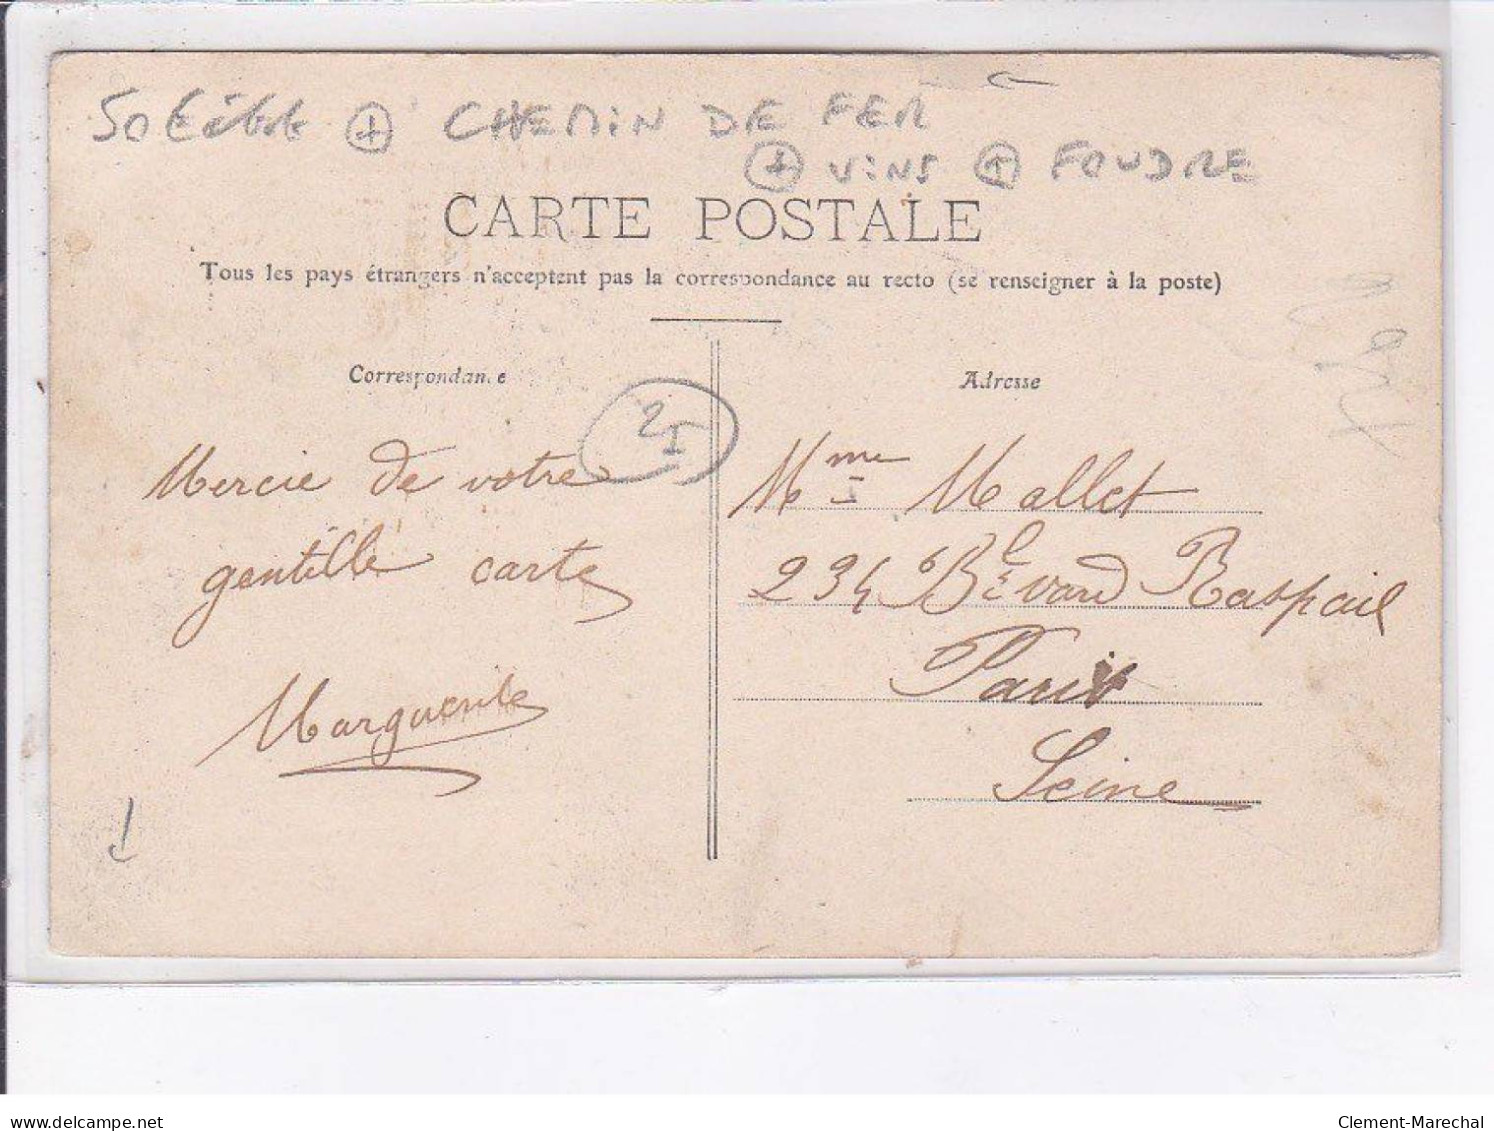 CHEMIN DE FER
+ VINS + FOUDRE
CARTE POSTALE
Tous les pays étrangers n'acceptent pas la correspondance au recto (se renseigner à la poste)
Correspondance
Adresse
2I
Mercie de votre
gentille carte
Marguerite
Mme Mallet
234 Blevard Raspail
Paris
Seine
delcampe.net
Clement-Marechal